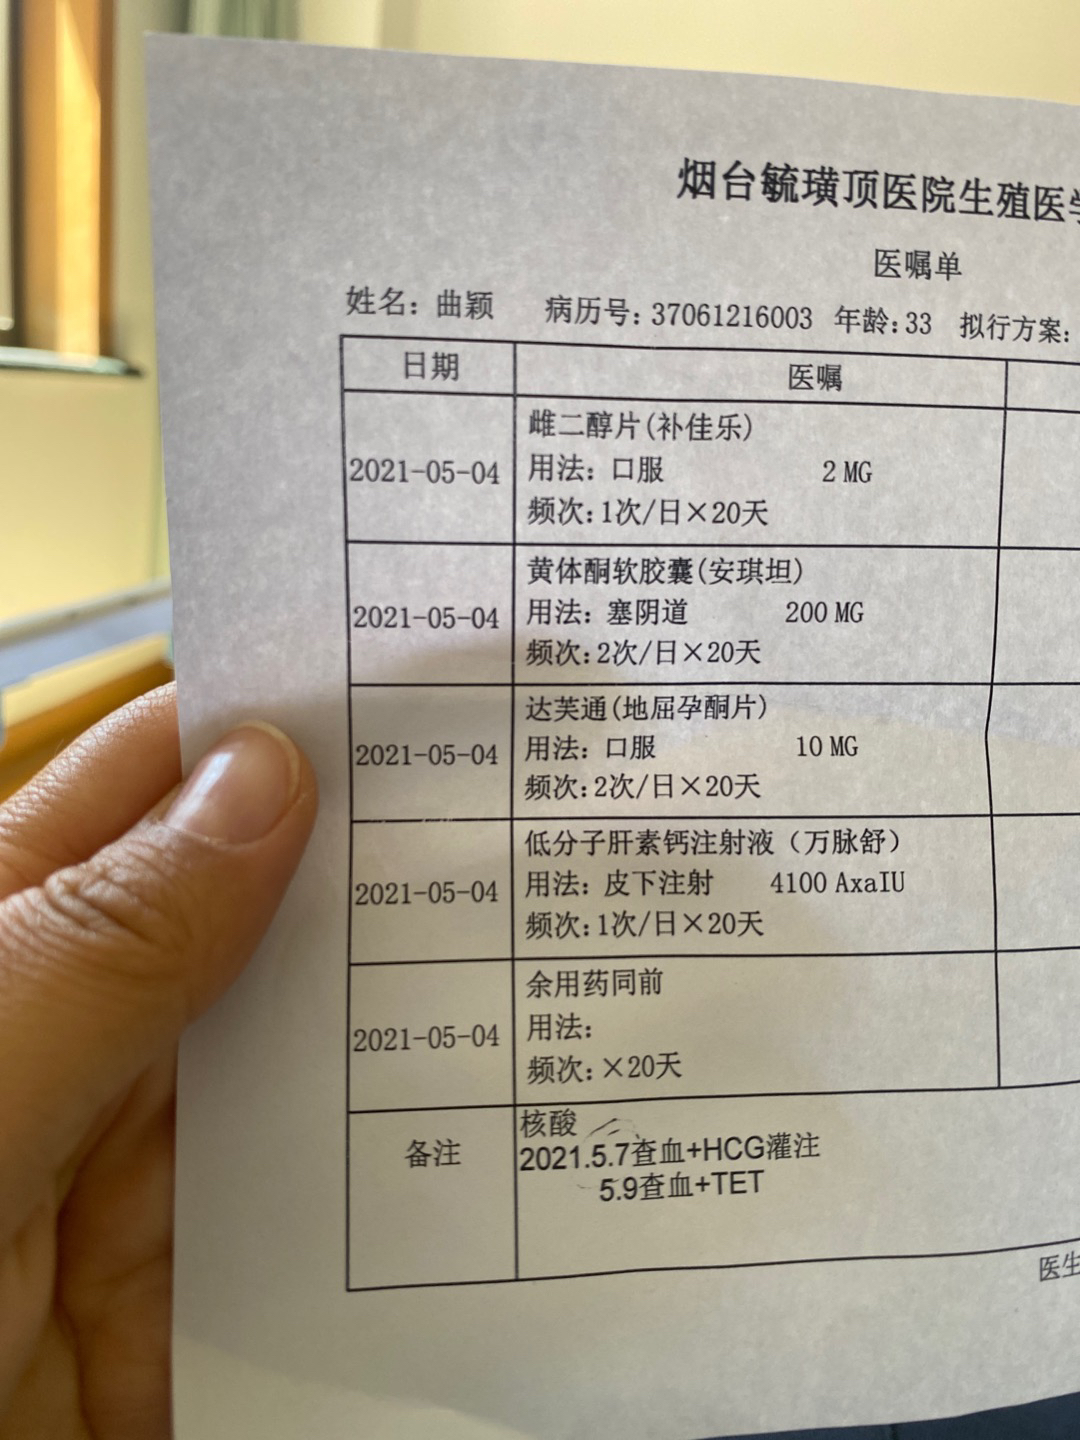 烟台毓璜顶医院生殖医学
医嘱单
姓名：曲颖 病历号：37061216003 年龄：33 拟行方案：
日期 医嘱
雌二醇片(补佳乐)
2021-05-04 用法：口服 2 MG
频次：1次/日×20天
黄体酮软胶囊(安琪坦)
2021-05-04 用法：塞阴道 200 MG
频次：2次/日×20天
达芙通(地屈孕酮片)
2021-05-04 用法：口服 10 MG
频次：2次/日×20天
低分子肝素钙注射液（万脉舒）
2021-05-04 用法：皮下注射 4100 AxaIU
频次：1次/日×20天
余用药同前
2021-05-04 用法：
频次：×20天
备注 核酸
2021.5.7查血+HCG灌注
5.9查血+TET
医生